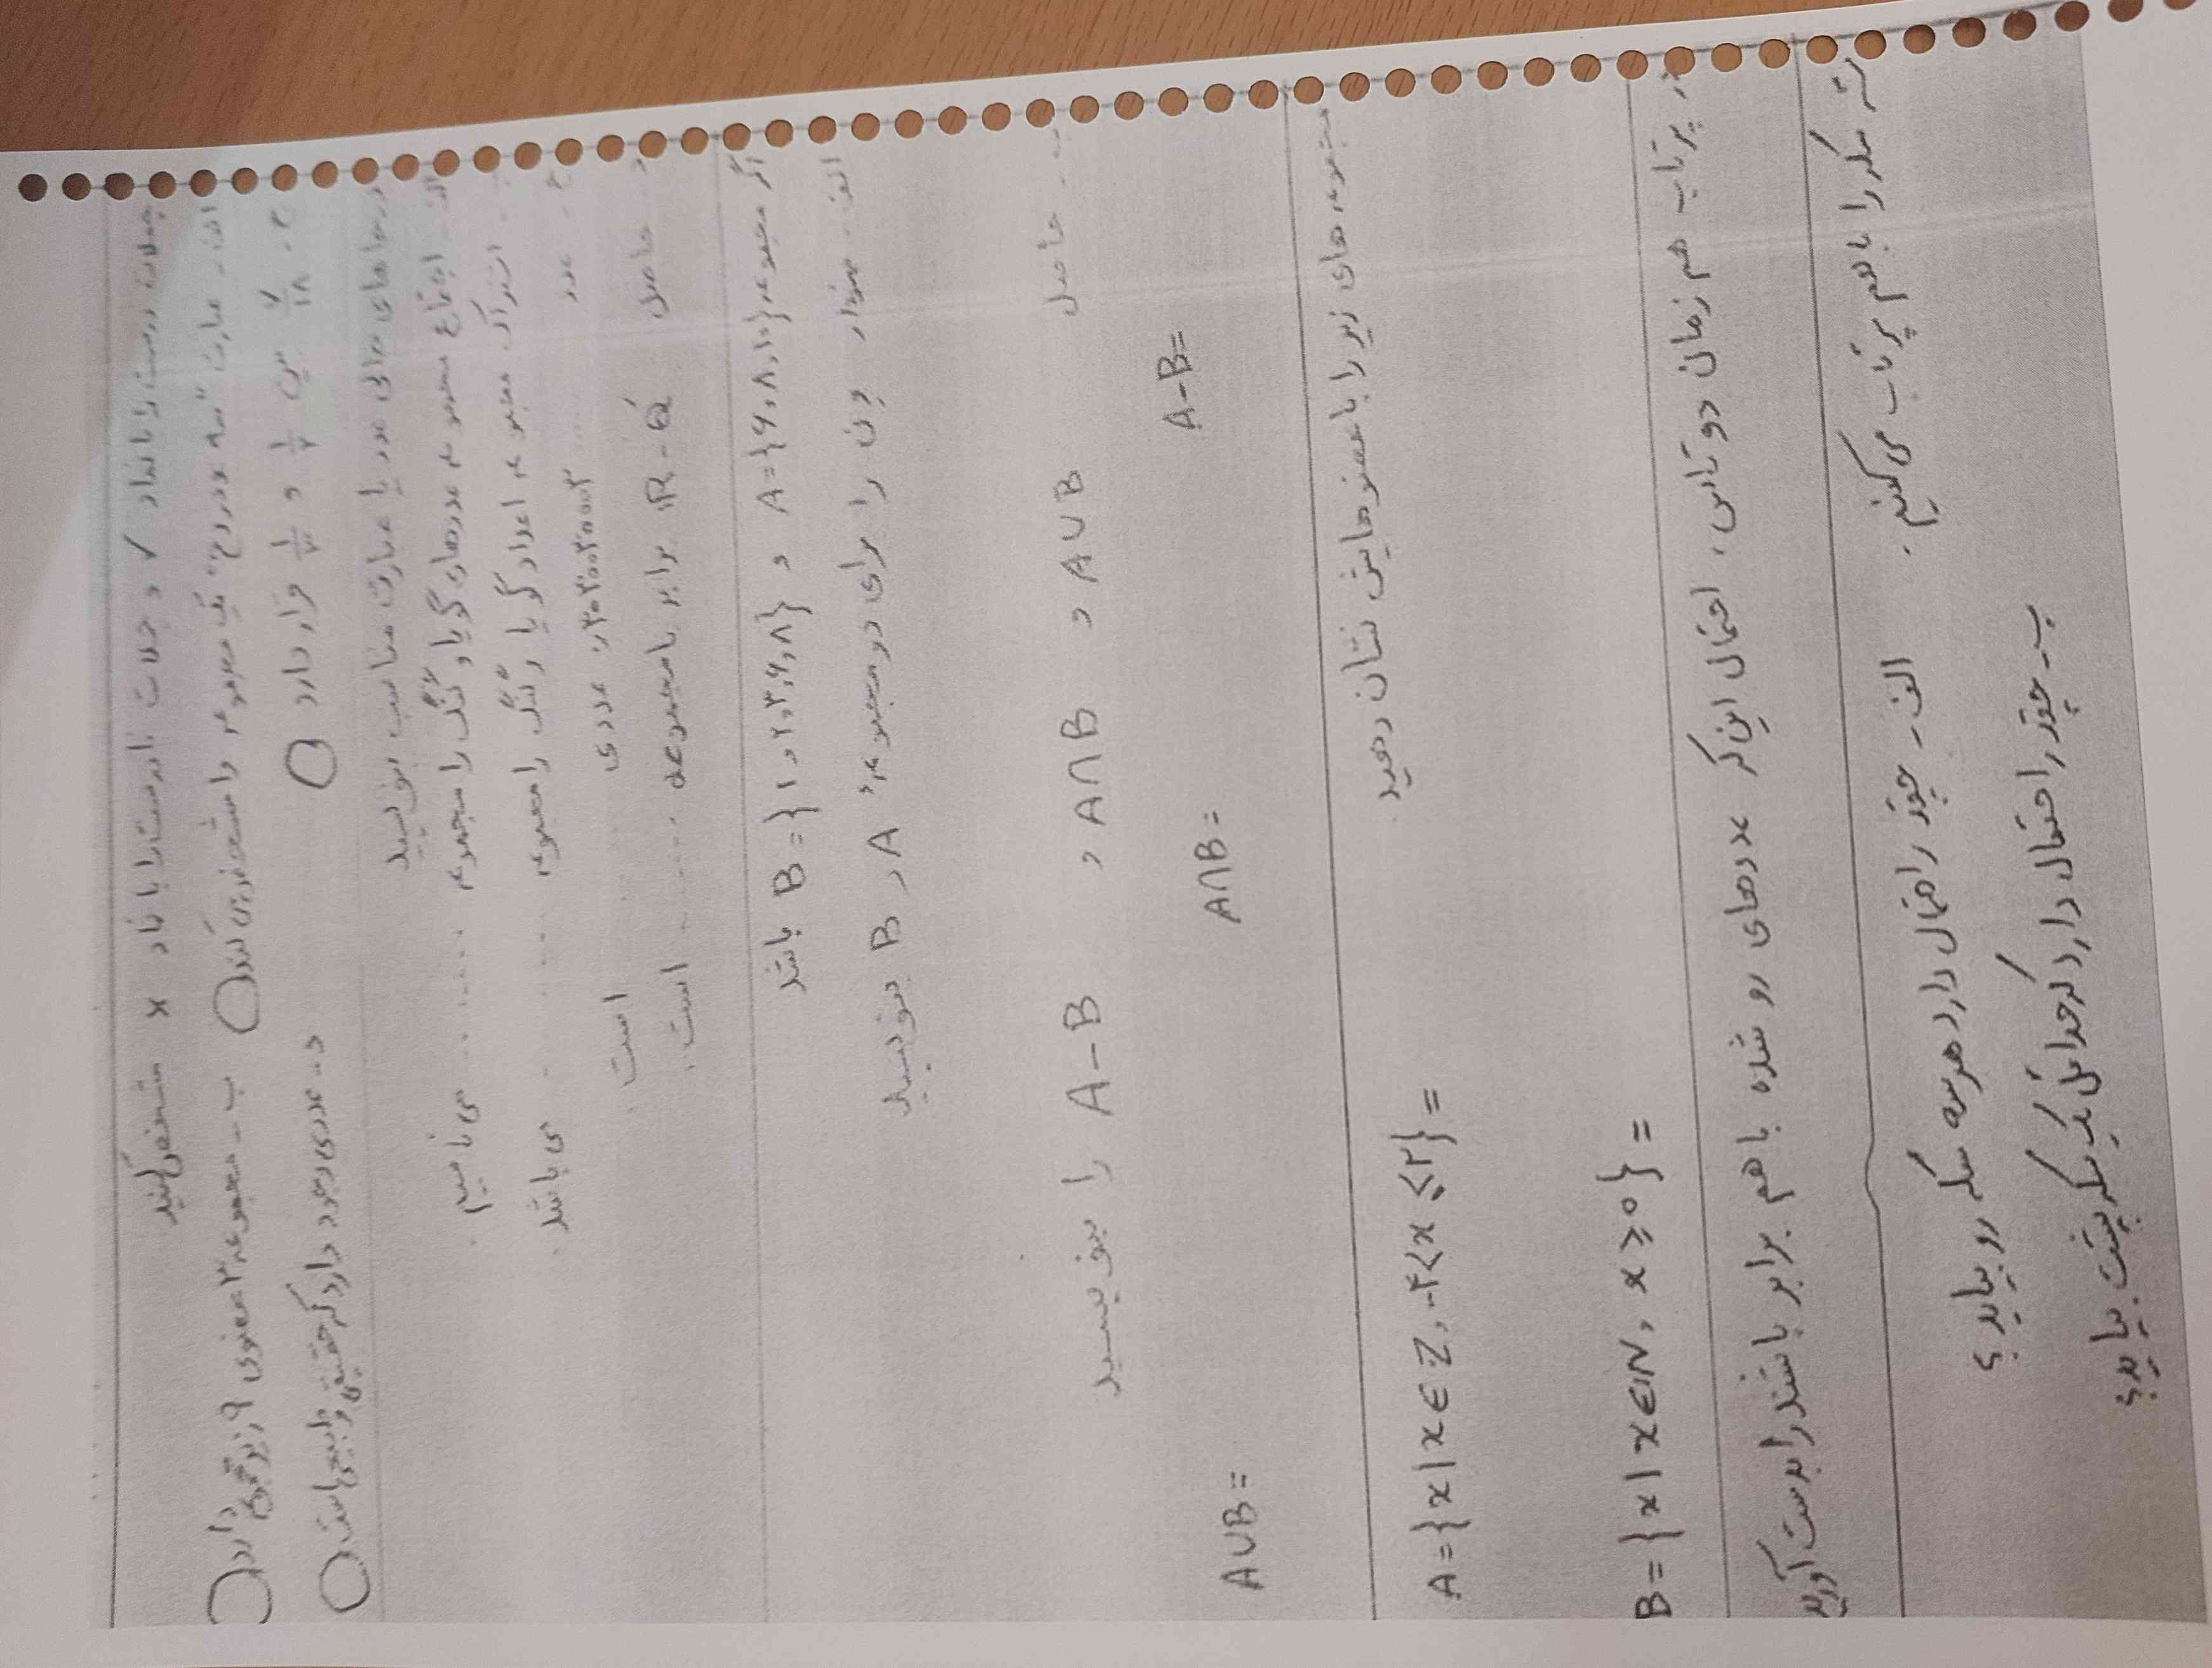 جملات درست را با نماد ✓ و جملات نادرست را با نماد × مشخص کنید
الف - عبارت "سه عدد زوج" یک مجموعه را مشخص می کند ○ ب - مجموعه ۳ عضوی ۹ زیرمجموعه دارد ○
ج - ۷/۱۸ بین ۱/۲ و ۱/۳ قرار دارد ○ د - عددی وجود دارد که حقیقی و طبیعی است ○
در جاهای خالی عدد یا عبارت مناسب بنویسید
الف - اجتماع مجموعه عددهای گویا و گنگ را مجموعه ........ می نامیم.
ب - اشتراک مجموعه اعداد گویا و گنگ را مجموعه ........ می باشد.
ج - عدد ۰٫۳۰۳۰۰۳۰۰۰۳... عددی ........ است.
د - حاصل R - Q' برابر با مجموعه ........ است.
اگر مجموعه A = {۶,۸,۱۰} و B = {۱,۲,۳,۶,۸} باشد
الف - نمودار ون را برای دو مجموعه A و B بنویسید
ب - حاصل A∪B و A∩B و A-B را بنویسید
A-B= A∩B= A∪B=
مجموعه های زیر را با عضوهایش نشان دهید.
A={x|x∈Z, -۴<x≤۲}=
B={x|x∈N, x≥۰}=
در پرتاب هم زمان دو تاس، احتمال این که عددهای رو شده باهم برابر باشند را بدست آورید
سه سکه را باهم پرتاب می کنیم. الف - چقدر احتمال دارد هر سه سکه رو بیاید؟
ب - چقدر احتمال دارد که حداقل یک سکه پشت بیاید؟